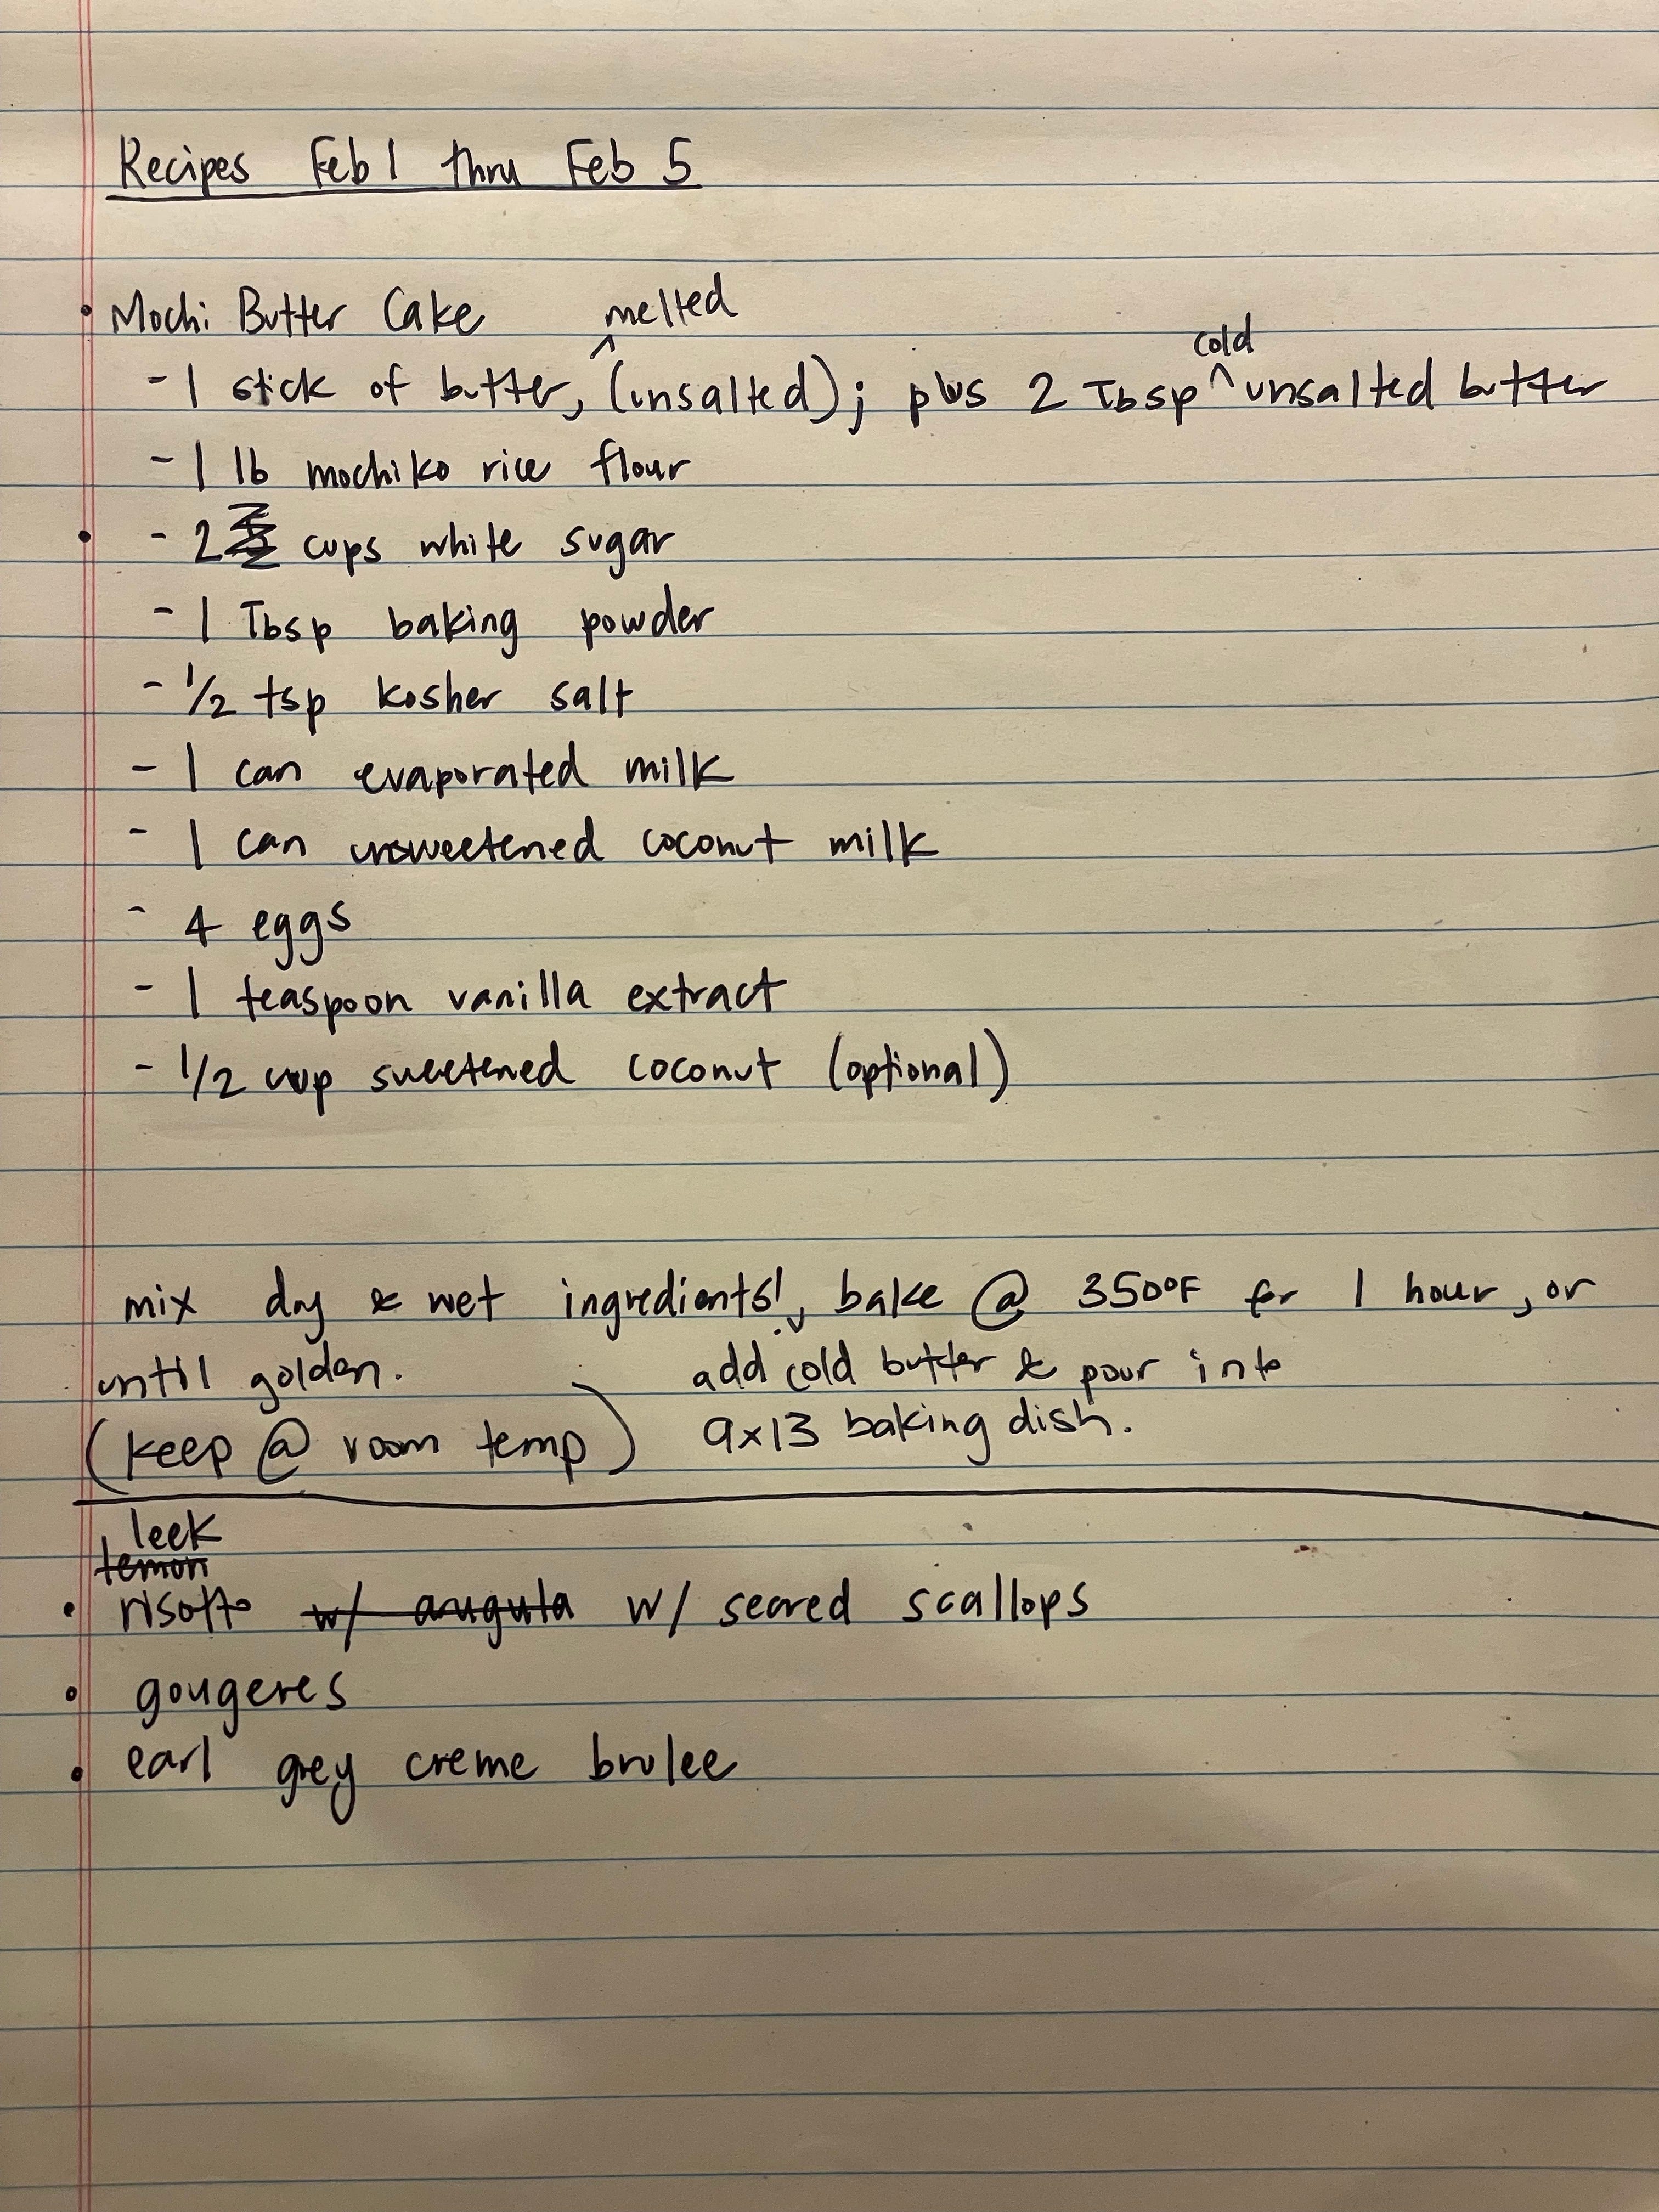 Recipes Feb 1 thru Feb 5
• Mochi Butter Cake
- 1 stick of butter, ^melted (unsalted); plus 2 Tbsp ^cold unsalted butter
- 1 lb mochiko rice flour
• - 2 cups white sugar
- 1 Tbsp baking powder
- 1/2 tsp kosher salt
- 1 can evaporated milk
- 1 can unsweetened coconut milk
- 4 eggs
- 1 teaspoon vanilla extract
- 1/2 cup sweetened coconut (optional)
mix dry & wet ingredients!, bake @ 350°F for 1 hour, or
until golden. add cold butter & pour into
(keep @ room temp) 9x13 baking dish.
leek
lemon
• risotto w/ arugula w/ seared scallops
• gougeres
• earl grey creme brulee